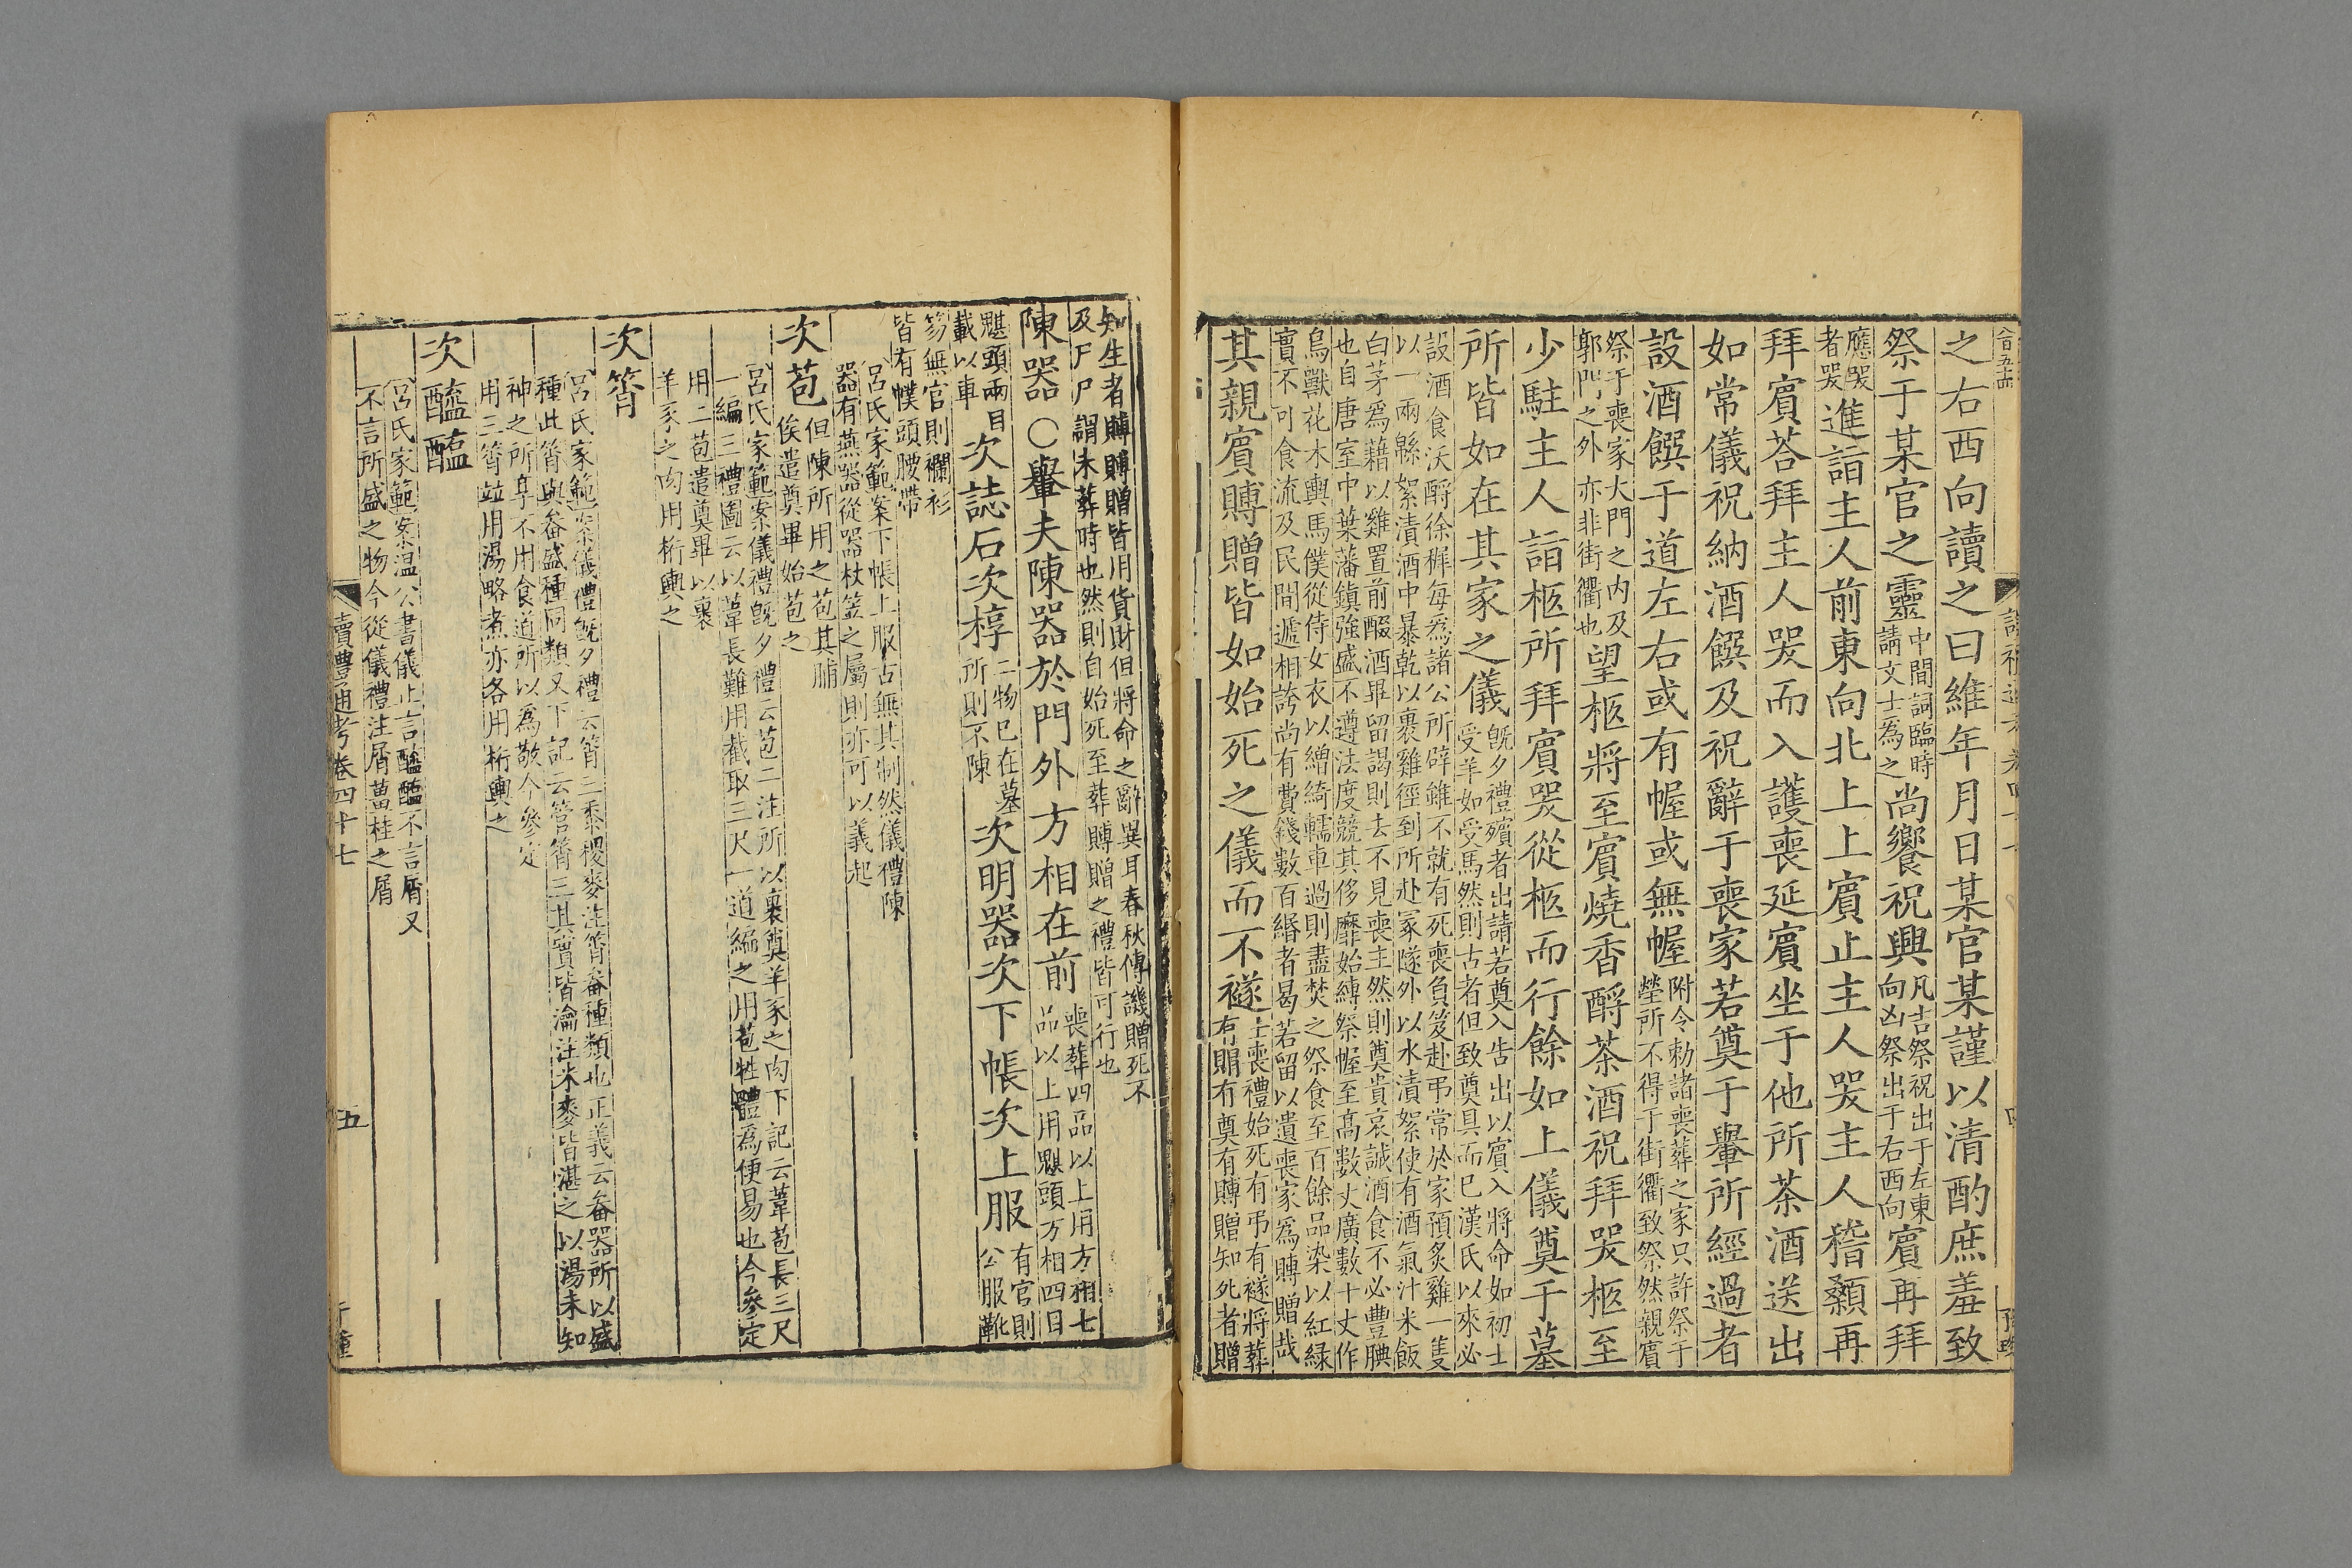 之右西向讀之曰維年月日某官某謹以清酌庶羞致
祭于某官之靈中間詞臨時請文士為之尚饗祝興凡吉祭祝出于左東向凶祭出于右西向賓再拜
應哭者哭進詣主人前東向北上上賓止主人哭主人稽顙再
拜賓荅拜主人哭而入護喪延賓坐于他所茶酒送出
如常儀祝納酒饌及祝辭于喪家若奠于轝所經過者
設酒饌于道左右或有幄或無幄附令勅諸喪葬之家只許祭于塋所不得于街衢致祭然親賓
祭于喪家大門之内及郭門之外亦非街衢也望柩將至賓燒香酹茶酒祝拜哭柩至
少駐主人詣柩所拜賓哭從柩而行餘如上儀奠于墓
所皆如在其家之儀既夕禮殯者出請若奠入告出以賓入將命如初士受羊如受馬然則古者但致奠具而已漢氏以來必
設酒食沃酹徐穉每爲諸公所辟雖不就有死喪負笈赴弔常於家預炙雞一隻
以一兩緜絮漬酒中暴乾以裹雞徑到所赴冢隧外以水漬絮使有酒氣汁米飯
白茅爲藉以雞置前醊酒畢留謁則去不見喪主然則奠貴哀誠酒食不必豐腆
也自唐室中葉藩鎮強盛不遵法度競其侈靡始縛祭幄至高數丈廣數十丈作
鳥獸花木輿馬僕從侍女衣以繒綺轜車過則盡焚之祭食至百餘品染以紅緑
實不可食流及民間遞相誇尚有費錢數百緡者曷若留以遺喪家爲賻贈哉
其親賓賻贈皆如始死之儀而不襚士喪禮始死有弔有襚將葬有賵有奠有賻贈知死者贈
知生者賻賻贈皆用貨財但將命之辭異耳春秋傳譏贈死不
及尸尸謂未葬時也然則自始死至葬賻贈之禮皆可行也
陳器○轝夫陳器於門外方相在前喪葬四品以上用方相七品以上用魌頭方相四目
魌頭兩目載以車次誌石次椁二物已在墓所則不陳次明器次下帳次上服有官則公服靴
笏無官則襴衫皆有幞頭腰帶
呂氏家範案下帳上服古無其制然儀禮陳
器有燕器從器杖笠之屬則亦可以義起
次苞但陳所用之苞其脯俟遣奠畢始苞之
呂氏家範案儀禮既夕禮云苞二注所以裹奠羊豕之肉下記云葦苞長三尺
一編三禮圖云以葦長難用截取三尺一道編之用苞牲體爲便易也今參定
用二苞遣奠畢以裹
羊豕之肉用桁轝之
次筲
呂氏家範案儀禮既夕禮云筲三黍稷麥注筲畚種類也正義云畚器所以盛
種此筲與畚盛種同類又下記云菅筲三其實皆瀹注米麥皆湛之以湯未知
神之所享不用食道所以爲敬今參定
用三筲竝用湯略煮亦各用桁轝之
次醯醢
呂氏家範案温公書儀止言醯醢不言屑又
不言所盛之物今從儀禮注屑薑桂之屑
讀禮通考卷四十七
五